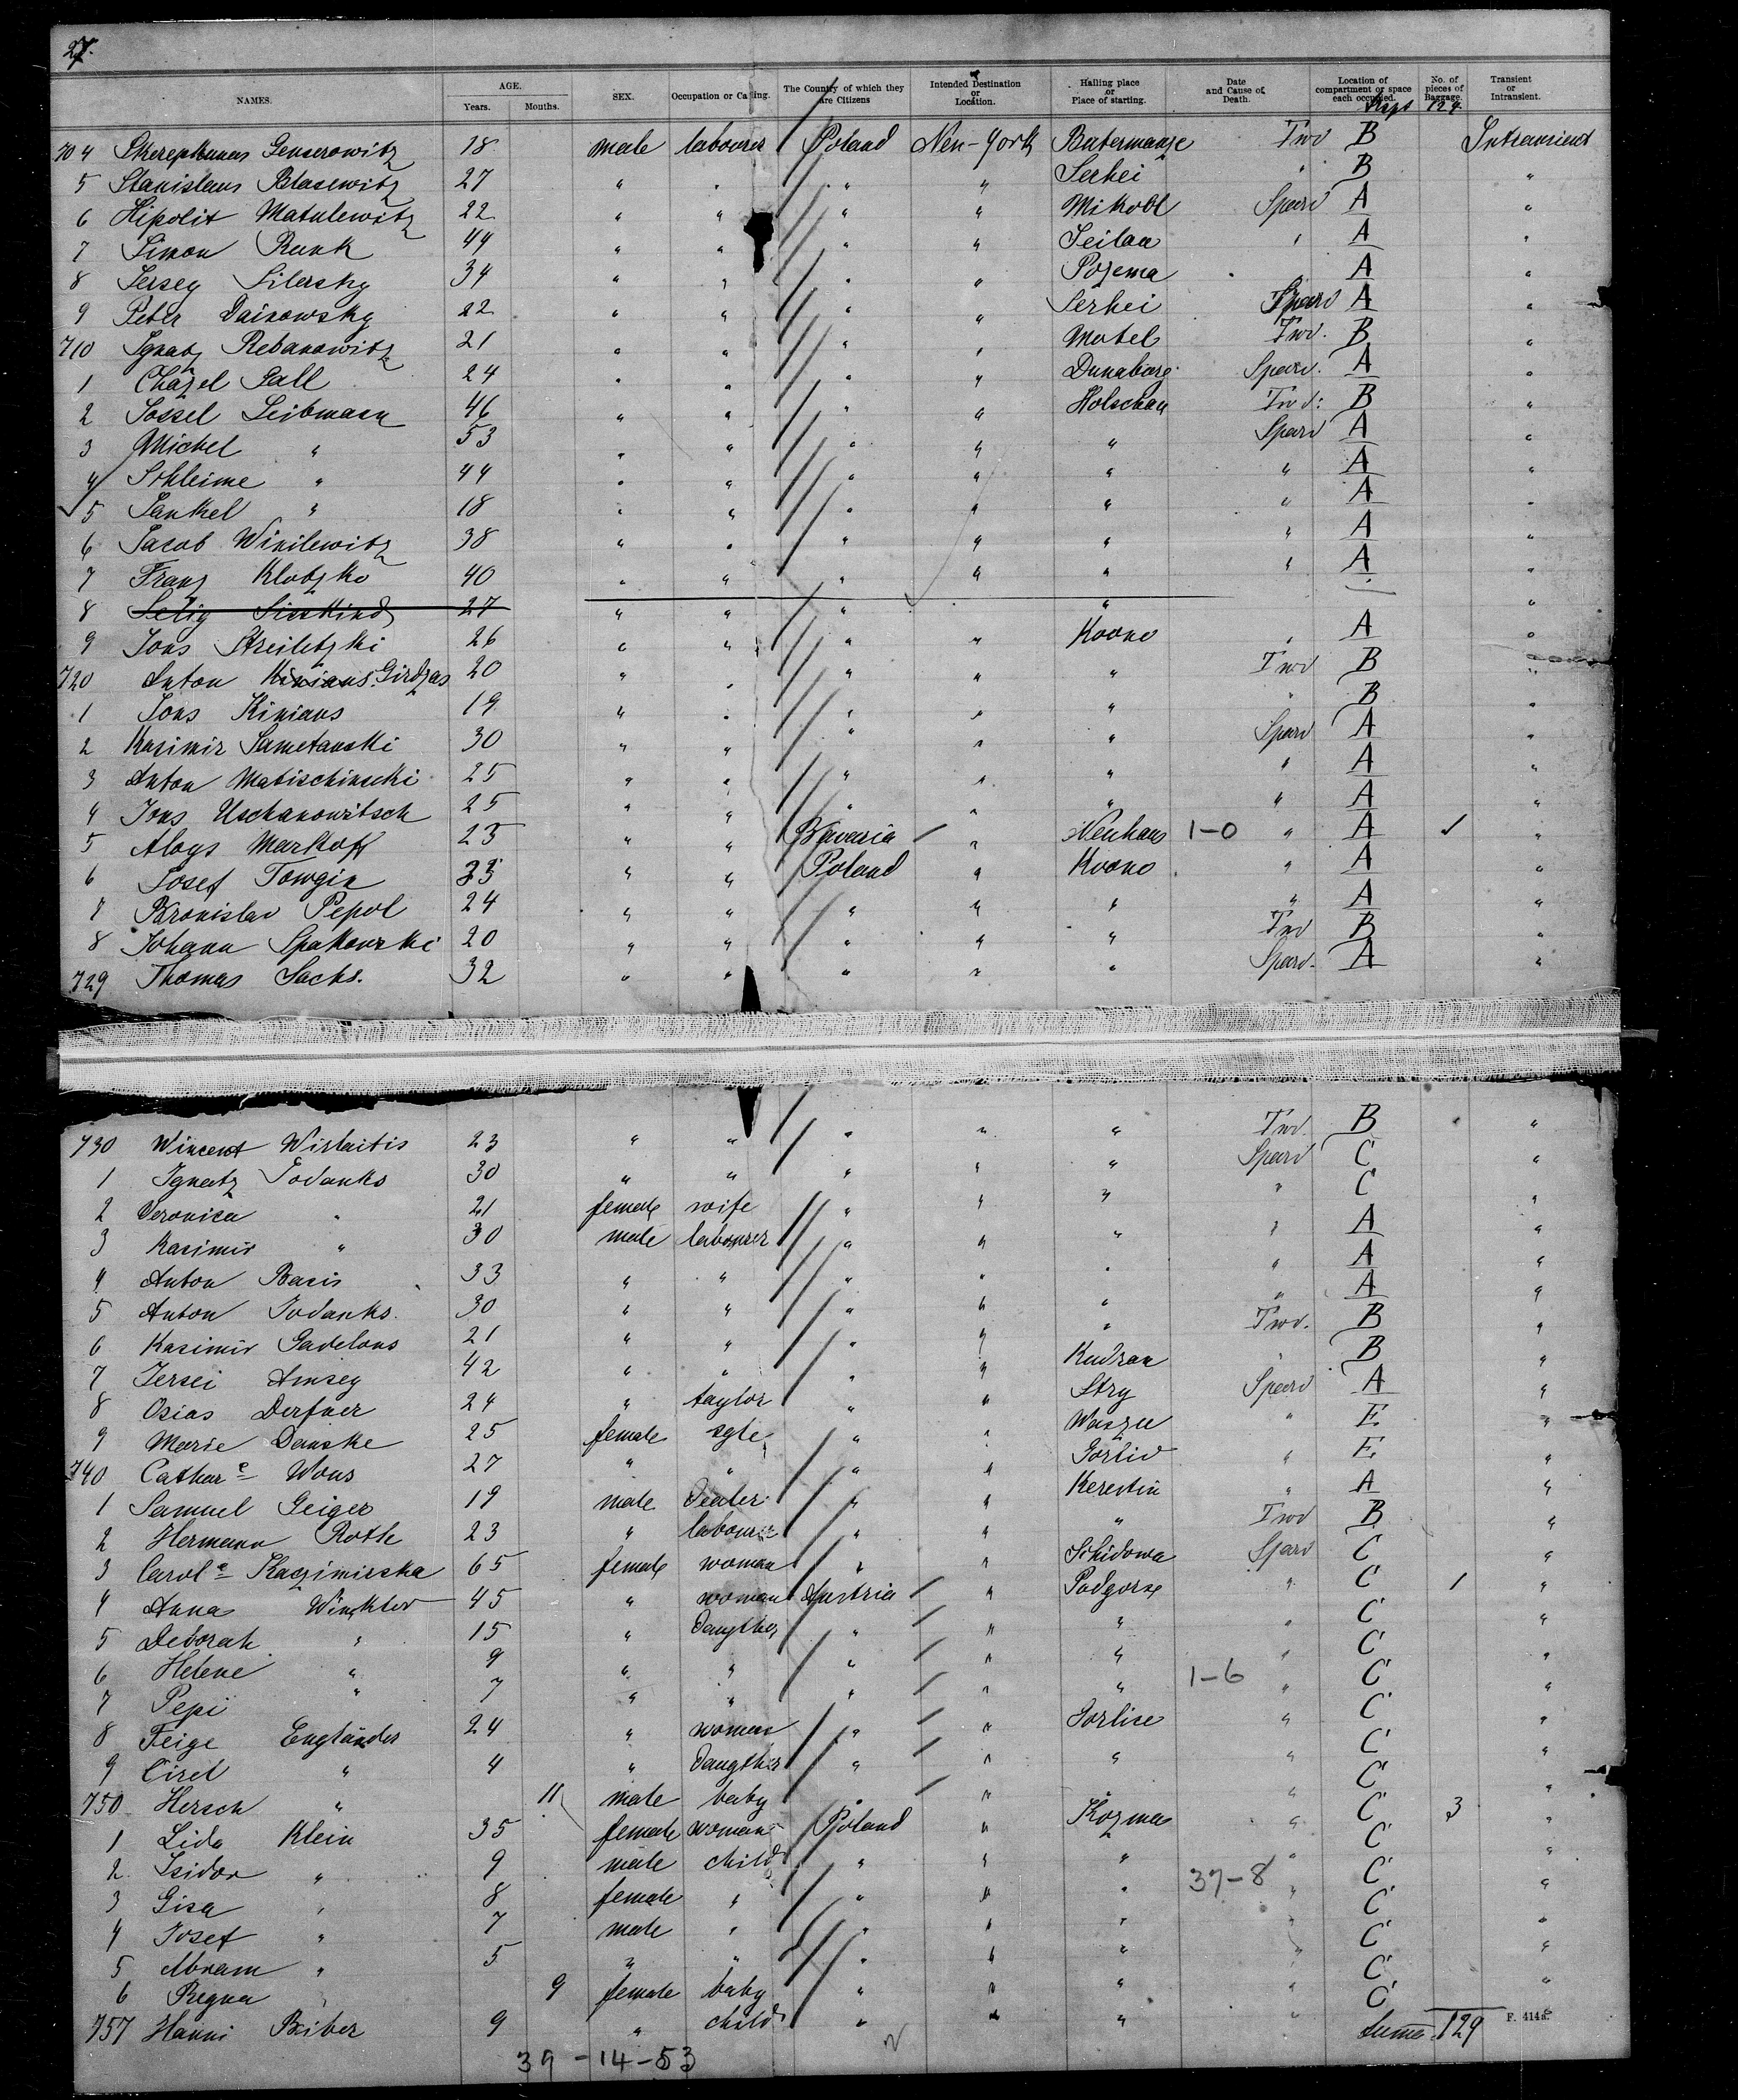 27.
NAMES. AGE. Years. Months. SEX. Occupation or Calling. The Country of which they are Citizens Intended Destination or Location. Hailing place or Place of starting. Date and Cause of Death. Location of compartment or space each occupied. No. of pieces of Baggage. Transient or Intransient.
124
704 Genserowitz 18 male labourer Poland New-York Butermanze Twd B Intransient
5 Stanislaus Blasewitz 27 " " " " Serhei " B "
6 Hipolit Matulewitz 22 " " " " Mikobl Spard A "
7 Simon Runk 44 " " " " Seilaa " A "
8 Jersey Silersky 34 " " " " Pozema " A "
9 Peter Dainowsky 22 " " " " Serhei Spard A "
710 Ignatz Rebanowitz 21 " " " " Motel Twd. B "
1 Chazel Pall 24 " " " " Dunaburg Spard. A "
2 Jossel Leibmann 46 " " " " Holschan Twd: B "
3 Michel " 53 " " " " " Spard A "
4 Schleime " 44 " " " " " " A "
5 Jankel " 18 " " " " " " A "
6 Jacob Winilewitz 38 " " " " " " A "
7 Franz Klotzko 40 " " " " " " A "
8 Selig Susskind 27 " " " " "
9 Jons Streiletzki 26 " " " " Kovno " A "
720 Anton Kinians Girdzas 20 " " " " " Twd B "
1 Jons Kinians 19 " " " " " " B "
2 Kasimir Sametanski 30 " " " " " Spard A "
3 Anton Matischinski 25 " " " " " " A "
4 Jons Uschanowitsch 25 " " " " " " A "
5 Aloys Markoff 23 " " Bavaria " Neuhaus 1-0 " A ✓ "
6 Josef Towgin 33 " " Poland " Kovno " A "
7 Bronislav Pepol 24 " " " " " " A "
8 Johann Spakowski 20 " " " " " Twd B "
729 Thomas Sachs. 32 " " " " " Spard. A "
730 Wincent Wislaitis 23 " " " " " Twd. B "
1 Ignatz Jodanks 30 " " " " " Spard C "
2 Veronica " 21 female wife " " " " C "
3 Kasimir " 30 male labourer " " " " A "
4 Anton Basis 33 " " " " " " A "
5 Anton Jodanks. 30 " " " " " " A "
6 Kasimir Gadelons 21 " " " " " Twd. B "
7 Jersei Amsey 42 " " " " Kudzan " B "
8 Osias Derfner 24 " taylor " " Stry Spard A "
9 Marie Danske 25 female sgle " " Waszu " E "
740 Cathar<sup>e</sup> Wons 27 " " " " Gorliv " E "
1 Samuel Geiger 19 male Dealer " " Kerestin " A "
2 Hermann Roth 23 " labourer " " " Twd B "
3 Carol<sup>e</sup> Kaczimirska 65 female woman " " Schidowa Spard C "
4 Anna Winkler 45 " woman Austria " Podgorze " C 1 "
5 Deborah " 15 " Daugther " " " " C "
6 Helene " 9 " " " " " " C "
7 Pepi " 7 " " " " " 1-6 " C "
8 Feige Engländer 24 " woman " " Gorlice " C "
9 Cirel " 4 " Daugther " " " " C "
750 Hersch " 11 male baby " " " " C "
1 Lida Klein 35 female woman Poland " Kozma " C 3 "
2 Isidor " 9 male child " " " " C "
3 Gisa " 8 female " " " " 37-8 " C "
4 Josef " 7 male " " " " " C "
5 Abram " 5 " " " " " " C "
6 Regna " 9 female baby " " " " C "
757 Hanni Biber 9 " child " " " " C "
Suma 129
F. 414a.
39-14-53